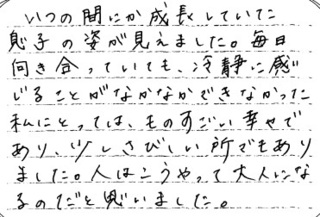 いつの間にか成長していた
息子の姿が見えました。毎日
向き合っていても、冷静に感
じることがなかなかできなかった
私にとっては、ものすごい幸せで
あり、少しさびしい所でもあり
ました。人はこうやって大人にな
るのだと思いました。